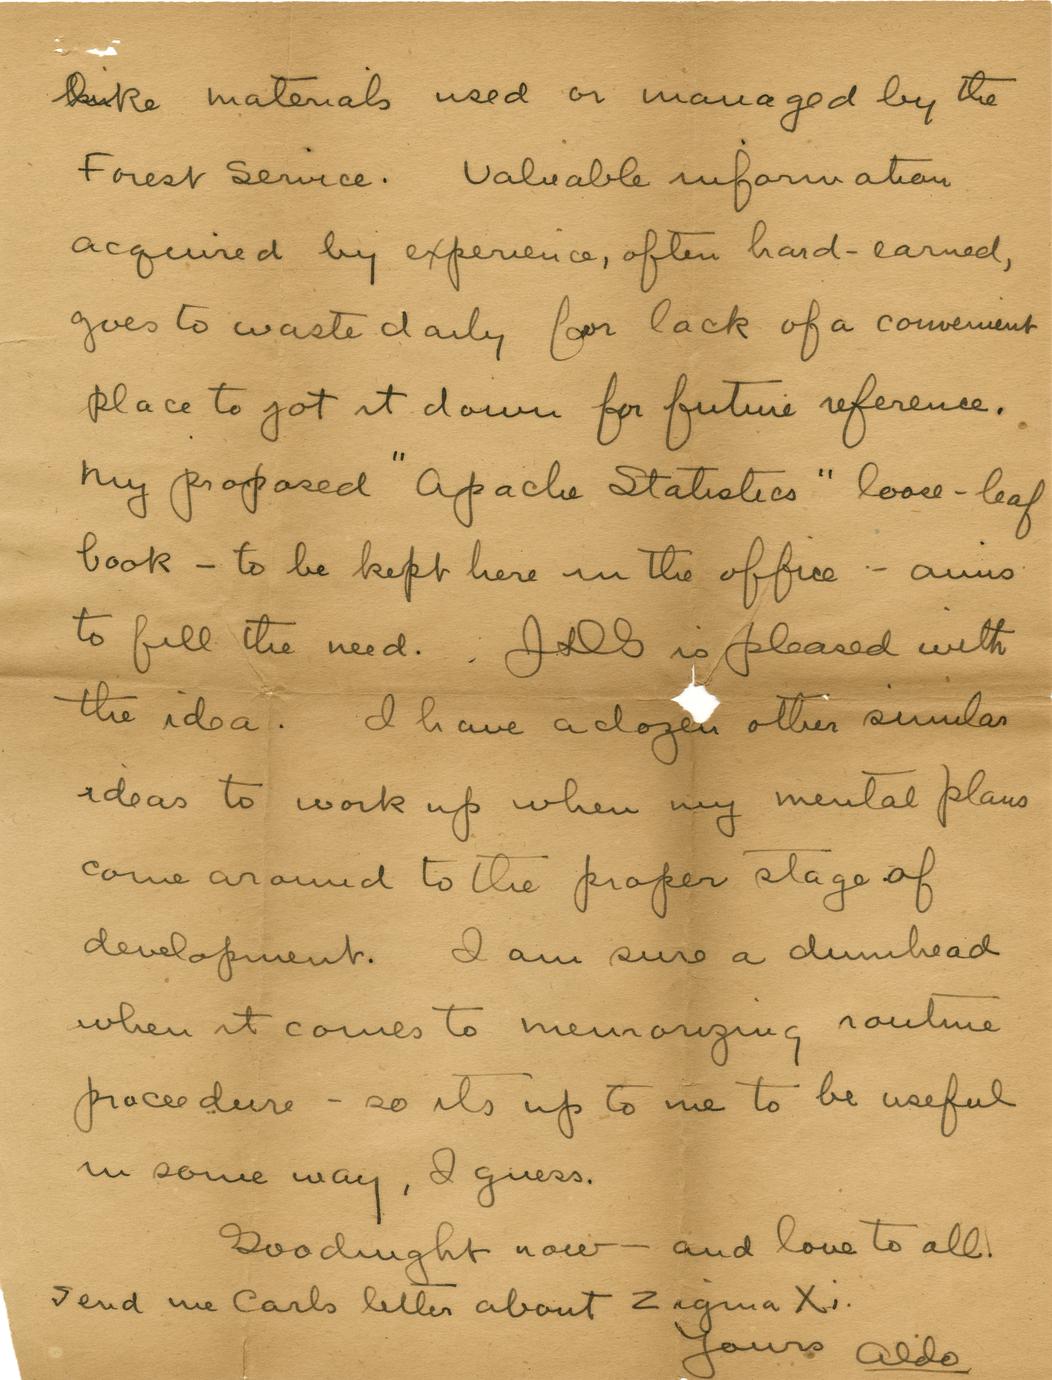 like materials used or managed by the
Forest Service. Valuable information
acquired by experience, often hard-earned,
goes to waste daily for lack of a convenient
place to jot it down for future reference.
My proposed "Apache Statistics" loose-leaf
book – to be kept here in the office – aims
to fill the need. is pleased with
the idea. I have a dozen other similar
ideas to work up when my mental plans
come around to the proper stage of
development. I am sure a dumhead
when it comes to memorizing routine
proceedure – so its up to me to be useful
in some way, I guess.
Goodnight now – and love to all.
Send me Carls letter about Zigma Xi.
Yours Aldo